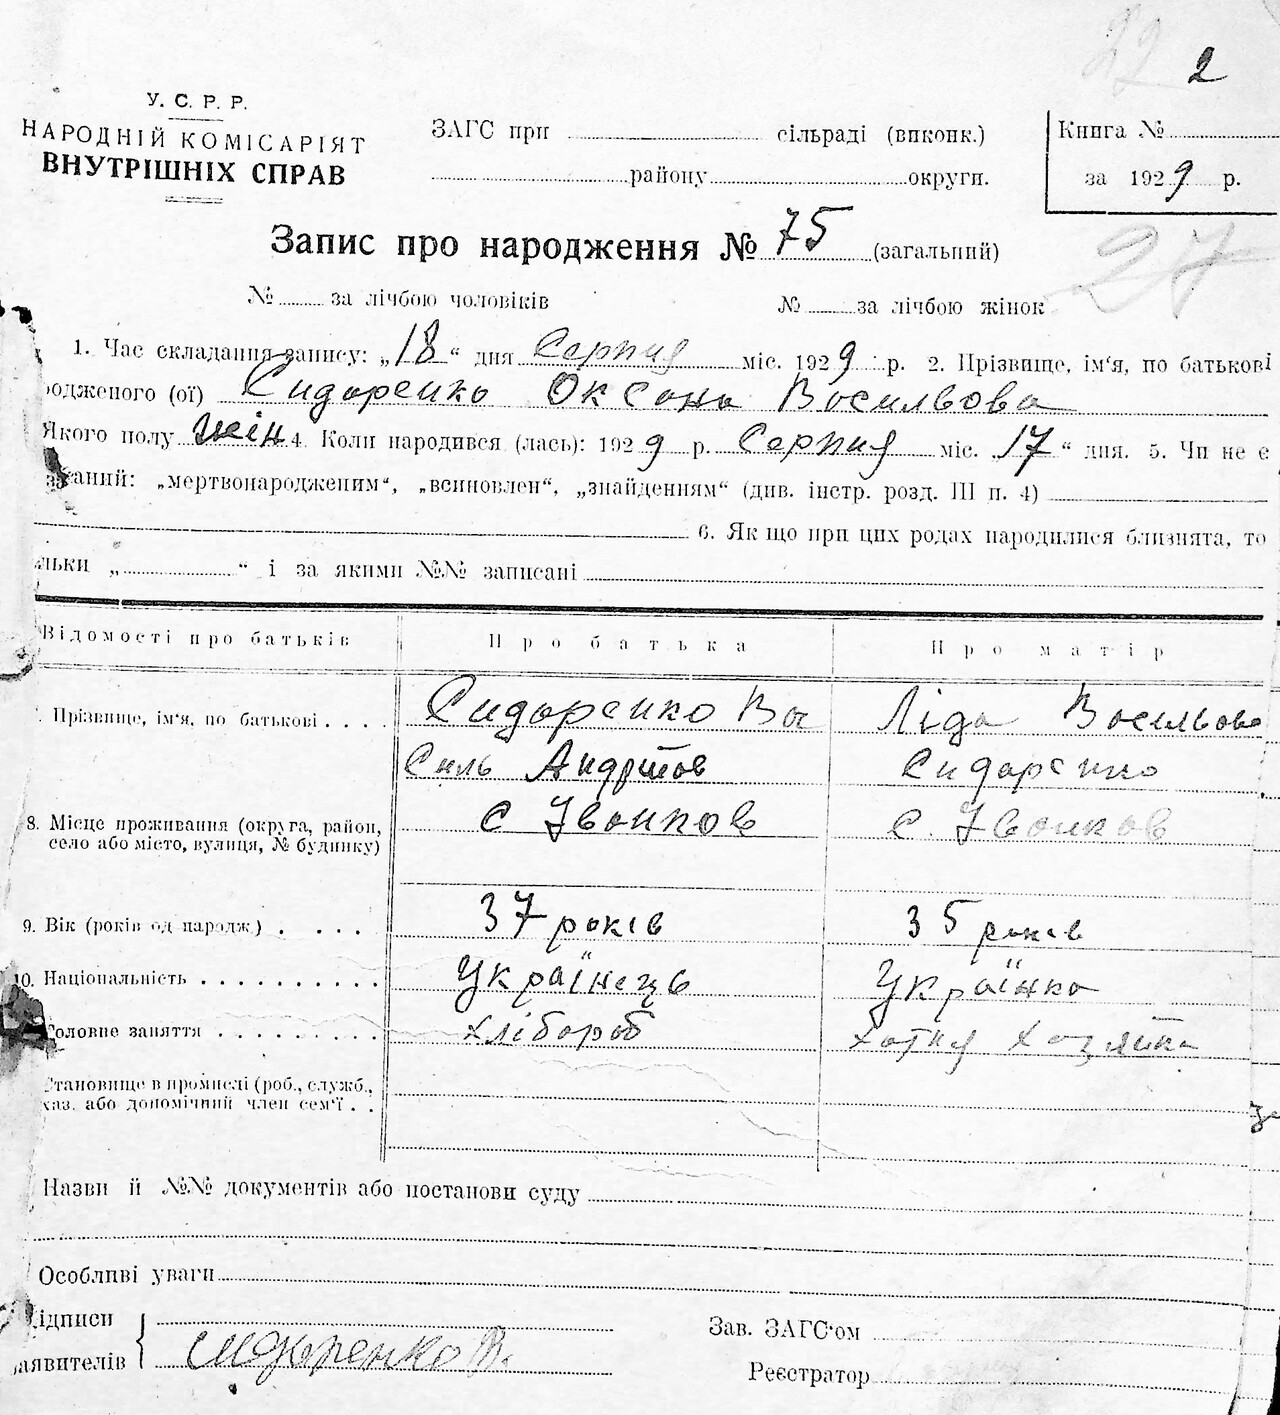 22 2
У. С. Р. Р.
НАРОДНІЙ КОМІСАРІЯТ
ВНУТРІШНІХ СПРАВ
ЗАГС при сільраді (виконк.)
району округи.
Книга №
за 1929 р.
Запис про народження № 75 (загальний)
27
№ за лічбою чоловіків № за лічбою жінок
1. Час складання запису: „18“ дня Серпня міс. 1929 р. 2. Прізвище, ім'я, по батькові
одженого (ої) Сидоренко Оксана Васильова
Якого полу жін 4. Коли народився (лась): 1929 р. Серпня міс. „17“ дня. 5. Чи не є
заний: „мертвонародженим“, „всиновлен“, „знайденням“ (див. інстр. розд. III п. 4)
6. Як що при цих родах народилися близнята, то
льки „ “ і за якими №№ записані
Відомості про батьків Про батька Про матір
Прізвище, ім'я, по батькові Сидоренко Ва Ліда Васильова
силь Андріїов Сидоренко
8. Місце проживання (округа, район, с Івонков с. Івонков
село або місто, вулиця, № будинку)
9. Вік (років од народж.) 37 років 35 років
10. Національність Українець Українка
Головне заняття хлібороб хатня хазяйка
Становище в промислі (роб., служб.,
хаз. або допомічний член сем'ї
Назви й №№ документів або постанови суду
Особливі уваги
ідписи
аявителів Сидоренко В.
Зав. ЗАГС'ом
Реєстратор